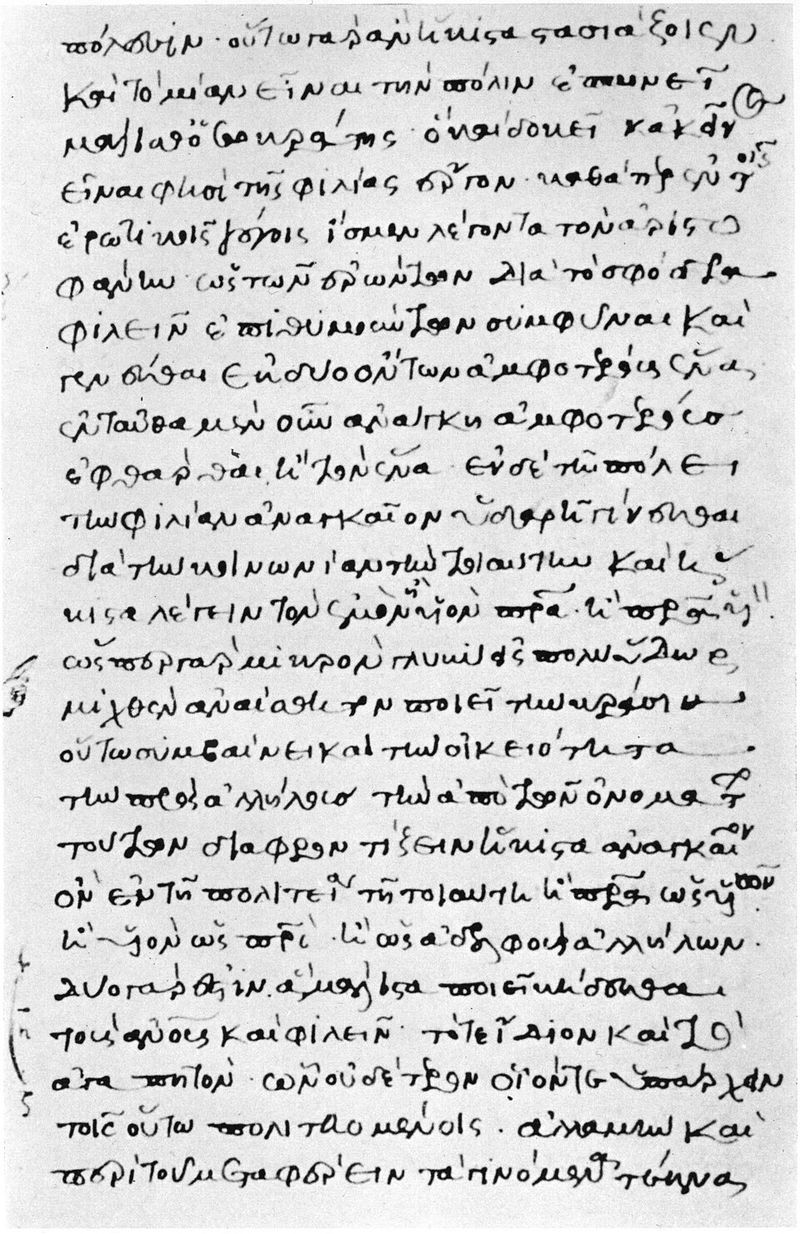 πόλεσιν· οὕτω γὰρ ἂν ἥκιστα στασιάζοιεν
καὶ τὸ μίαν εἶναι τὴν πόλιν ἐπαινεῖ
μάλισθ' ὁ σωκράτης· ὃ καὶ δοκεῖ κἀκεῖν
εἶναι φησὶ τῆς φιλίας ἔργον· καθάπερ ἐν τοῖς
ἐρωτικοῖς λόγοις ἴσμεν λέγοντα τὸν ἀριστο
φάνην ὡς τῶν ἐρώντων διὰ τὸ σφόδρα
φιλεῖν ἐπιθυμούντων συμφῦναι καὶ
γενέσθαι ἐκ δύο ὄντων ἀμφοτέρους ἕνα·
ἐνταῦθα μὲν οὖν ἀνάγκη ἀμφοτέρους
ἐφθάρθαι ἢ τὸν ἕνα· ἐν δὲ τῇ πόλει
τὴν φιλίαν ἀναγκαῖον ὑδαρῆ γίνεσθαι
διὰ τὴν κοινωνίαν τὴν τοιαύτην καὶ ἥ
κιστα λέγειν τὸν ἐμὸν ἢ υἱὸν πατέρα· ἢ πατέρα υἱόν
ὥσπερ γὰρ μικρὸν γλυκὺ εἰς πολὺ ὕδωρ
μιχθὲν ἀναίσθητον ποιεῖ τὴν κρᾶσιν
οὕτω συμβαίνει καὶ τὴν οἰκειότητα
τὴν πρὸς ἀλλήλους τὴν ἀπὸ τῶν ὀνομάτων
τούτων διαφροντίζειν ἥκιστα ἀναγκαῖον
ὂν ἐν τῇ πολιτείᾳ τῇ τοιαύτῃ ἢ πατέρα ὡς υἱῶν
ἢ υἱὸν ὡς πατρός· ἢ ὡς ἀδελφοὺς ἀλλήλων·
δύο γάρ ἐστιν ἃ μάλιστα ποιεῖ κήδεσθαι
τοὺς ἀνθρώπους καὶ φιλεῖν· τό τε ἴδιον καὶ τὸ
ἀγαπητόν· ὧν οὐδέτερον οἷόν τε ὑπάρχειν
τοῖς οὕτω πολιτευομένοις· ἀλλὰ μὴν καὶ
περὶ τοῦ μεταφέρειν τὰ γινόμενα τέκνα